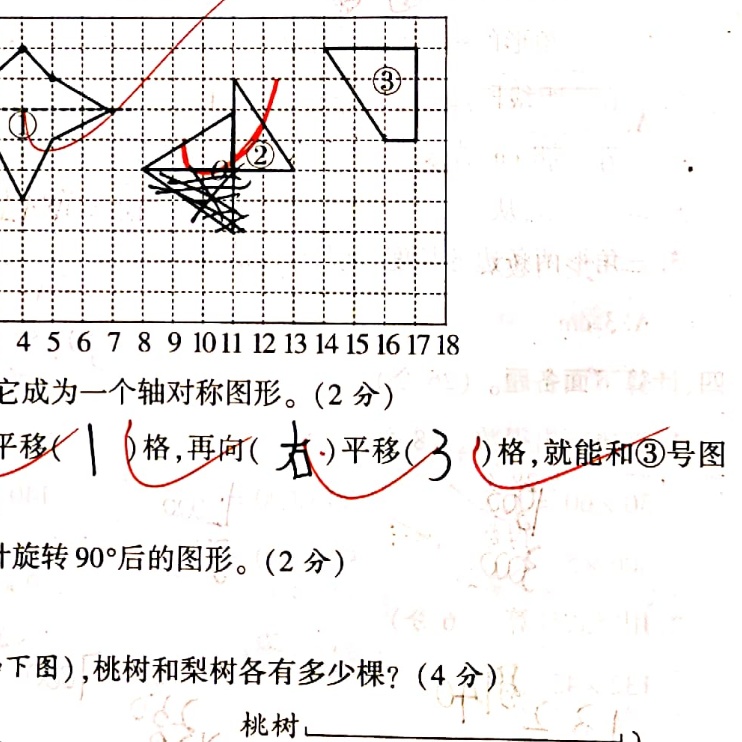 ③
①
②
4 5 6 7 8 9 10 11 12 13 14 15 16 17 18
它成为一个轴对称图形。(2分)
平移( 1 )格,再向( 右 )平移( 3 )格,就能和③号图
旋转90°后的图形。(2分)
下图),桃树和梨树各有多少棵?(4分)
桃树